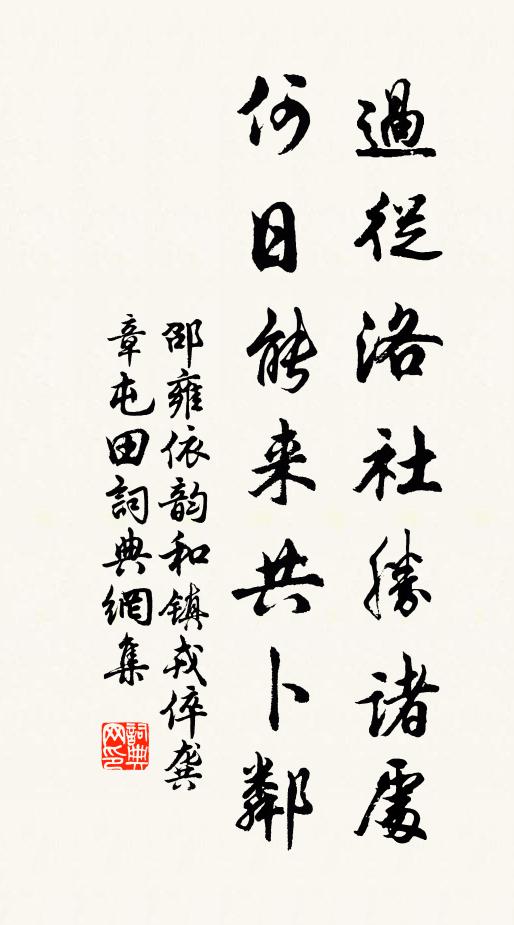 過從洛社勝諸處
何日能来共卜鄰
邵雍依韵和鎮戎倅龔
章屯田詞典網集
詞典
网印